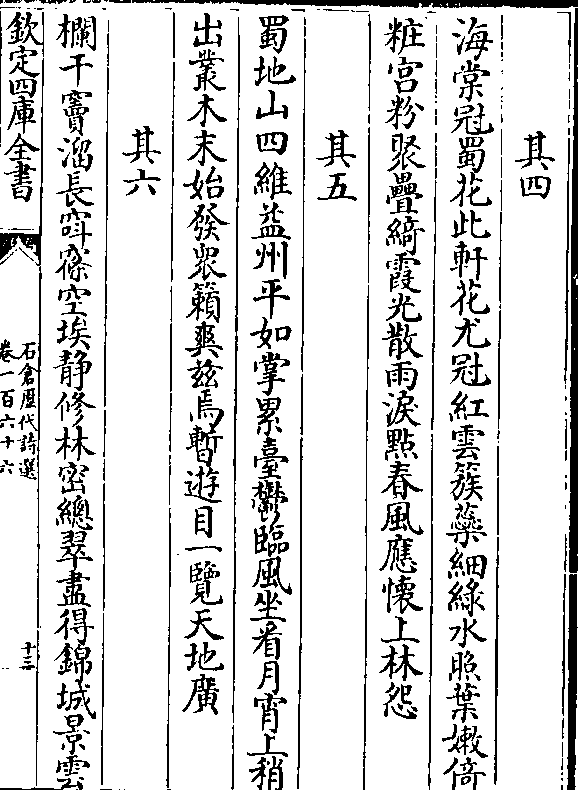 其四
海棠冠蜀花此軒花尤冠紅雲簇蘂細綠水照葉嫩倚
粧宫粉聚疊綺霞光散雨淚點春風應懷上林怨
其五
蜀地山四維益州平如掌累臺鬱臨風坐看月宵上稍
出叢木末始發衆籟爽兹焉暫遊目一覽天地廣
其六
欄干竇溜長窙䆲空埃静修林密總翠盡得錦城景雲
欽定四庫全書
石倉歷代詩選
卷一百六十六
十三